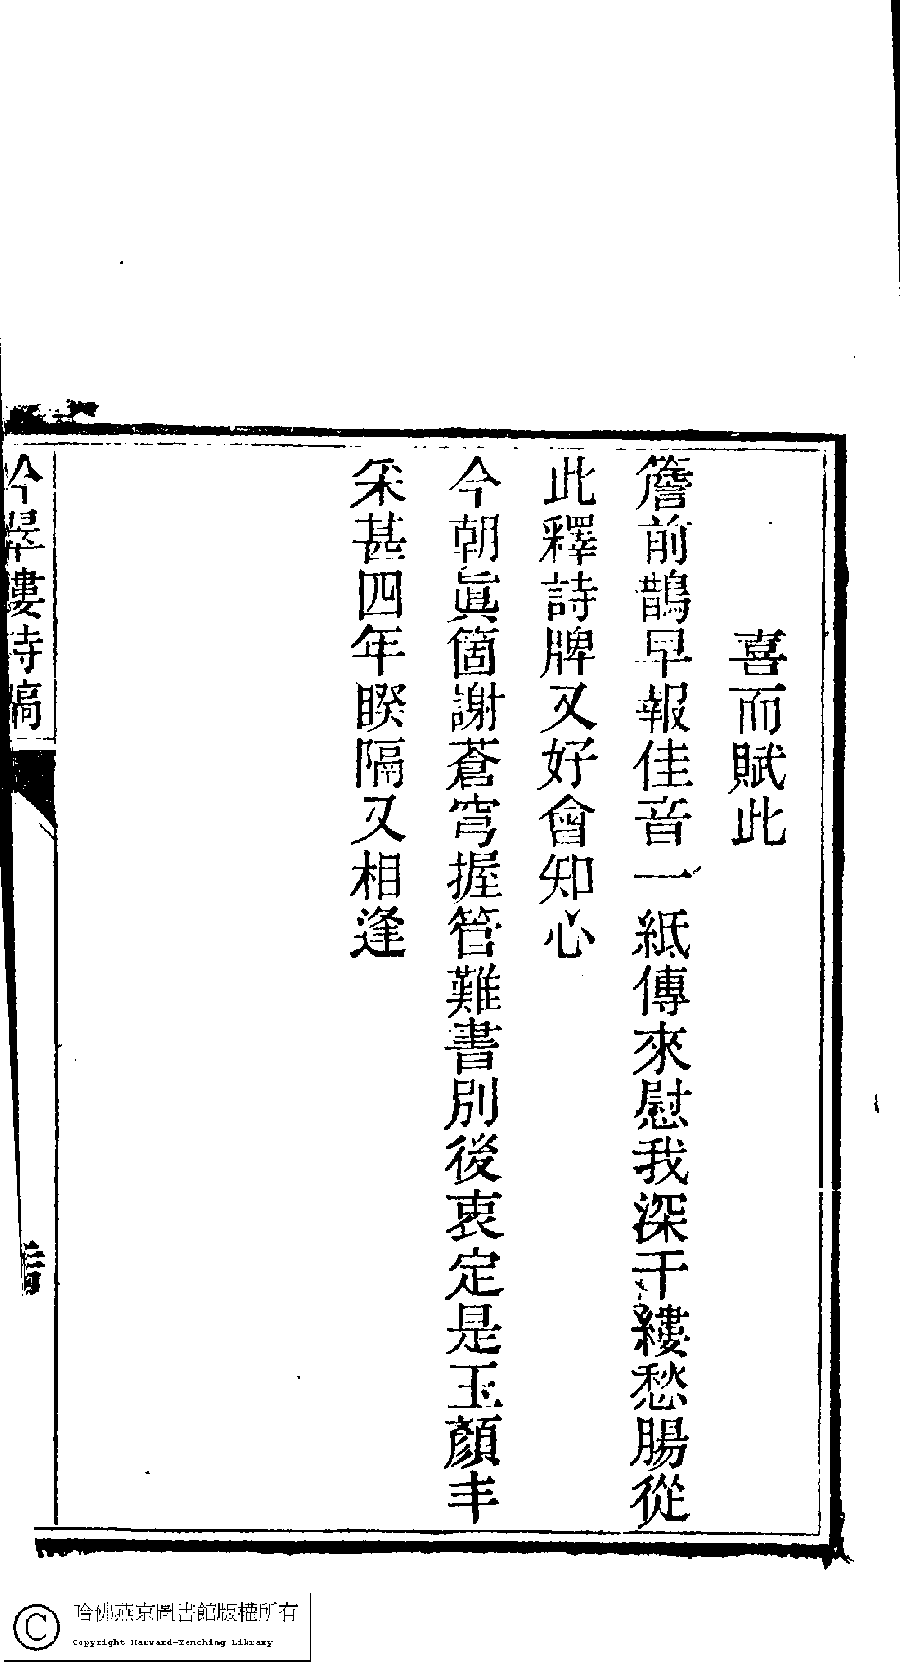 喜而賦此
簷前鵲早報佳音一紙傳來慰我深千縷愁腸從
此釋詩牌又好會知心
今朝眞箇謝蒼穹握管難書別後衷定是玉顏丰
采甚四年睽隔又相逢
吟翠樓詩稿
哈佛燕京圖書館版權所有
Copyright Harvard-Yenching Library